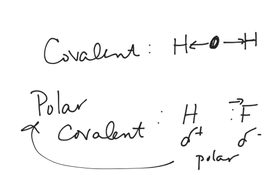 Covalent : H ← 0 → H
Polar
Covalent : H :F
δ+ δ-
polar